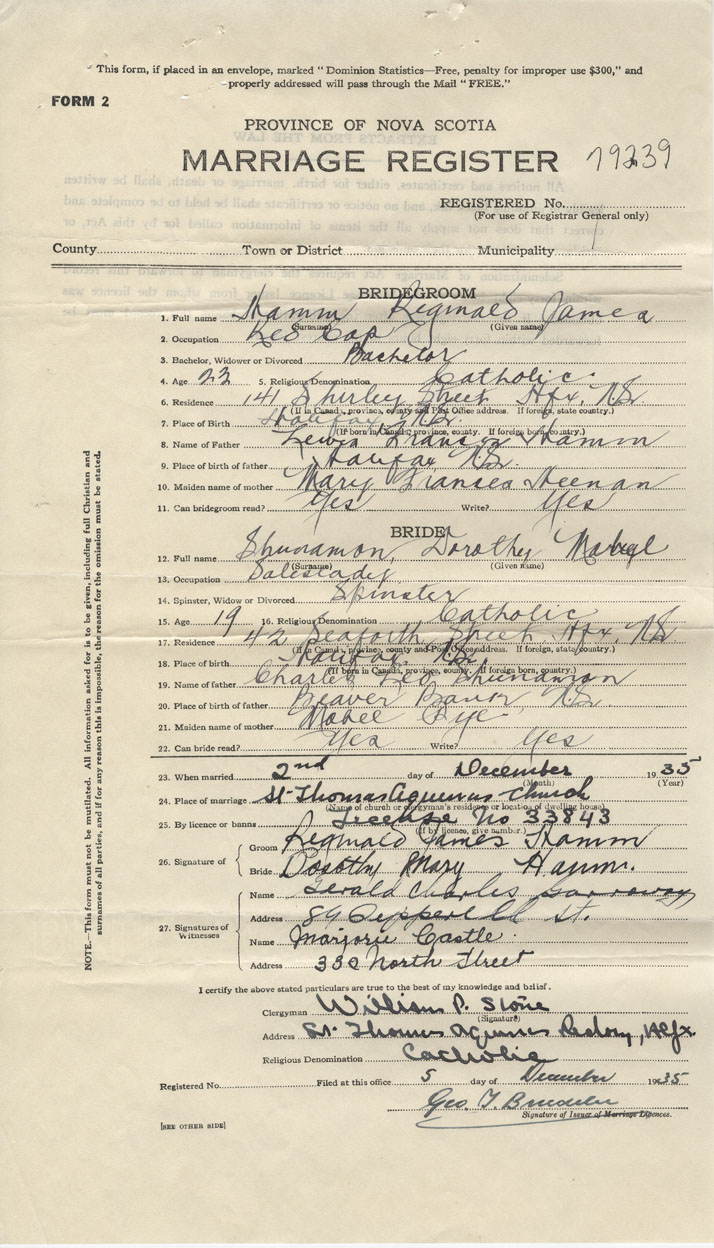 "This form, if placed in an envelope, marked "Dominion Statistics—Free, penalty for improper use $300," and
properly addressed will pass through the Mail "FREE."
FORM 2
PROVINCE OF NOVA SCOTIA
MARRIAGE REGISTER 79239
REGISTERED No.
(For use of Registrar General only)
County Town or District Municipality
BRIDEGROOM
1. Full name Hamm Reginald James
(Surname) (Given name)
2. Occupation
3. Bachelor, Widower or Divorced Bachelor
4. Age 23 5. Religious Denomination Catholic
6. Residence 141 Shirley Street Hfx. NS
(If in Canada, province, county and Post Office address. If foreign, state country.)
7. Place of Birth Halifax, NS.
(If born in Canada, province, county. If foreign born, country.)
8. Name of Father Lewis Francis Hamm
9. Place of birth of father Halifax NS.
10. Maiden name of mother Mary Frances Heenan
11. Can bridegroom read? Yes Write? Yes
BRIDE
12. Full name Shunamon, Dorothy
(Surname) (Given name)
13. Occupation Saleslady
14. Spinster, Widow or Divorced Spinster
15. Age 19 16. Religious Denomination Catholic
17. Residence 42 Seaforth Street Hfx. NS
(If in Canada, province, county and Post Office address. If foreign, state country.)
18. Place of birth Halifax, NS.
(If born in Canada, province, county. If foreign born, country.)
19. Name of father Charles Leo Shunamon
20. Place of birth of father Beaver Bank, NS
21. Maiden name of mother Mabel Pye
22. Can bride read? Yes Write? Yes
23. When married 2nd day of December 1935
(Month) (Year)
24. Place of marriage St Thomas Aquinas Church
(Name of church or clergyman's residence or location of dwelling house)
25. By licence or banns License No 33843
(If by licence, give number.)
26. Signature of
Groom Reginald James Hamm
Bride Dorothy Mary Hamm.
27. Signatures of Witnesses
Name Gerald Charles Garroway
Address 89 Pepperell St.
Name Marjorie Castle
Address 330 North Street
I certify the above stated particulars are true to the best of my knowledge and belief.
Clergyman William P. Stone
(Signature)
Address St. Thomas Aquinas Rectory, Hfx.
Religious Denomination Catholic
Registered No. Filed at this office 5 day of December 1935
Geo. T.
Signature of Issuer of Marriage Licences.
[SEE OTHER SIDE]
NOTE.—This form must not be mutilated. All information asked for is to be given, including full Christian and
surnames of all parties, and if for any reason this is impossible, the reason for the omission must be stated.